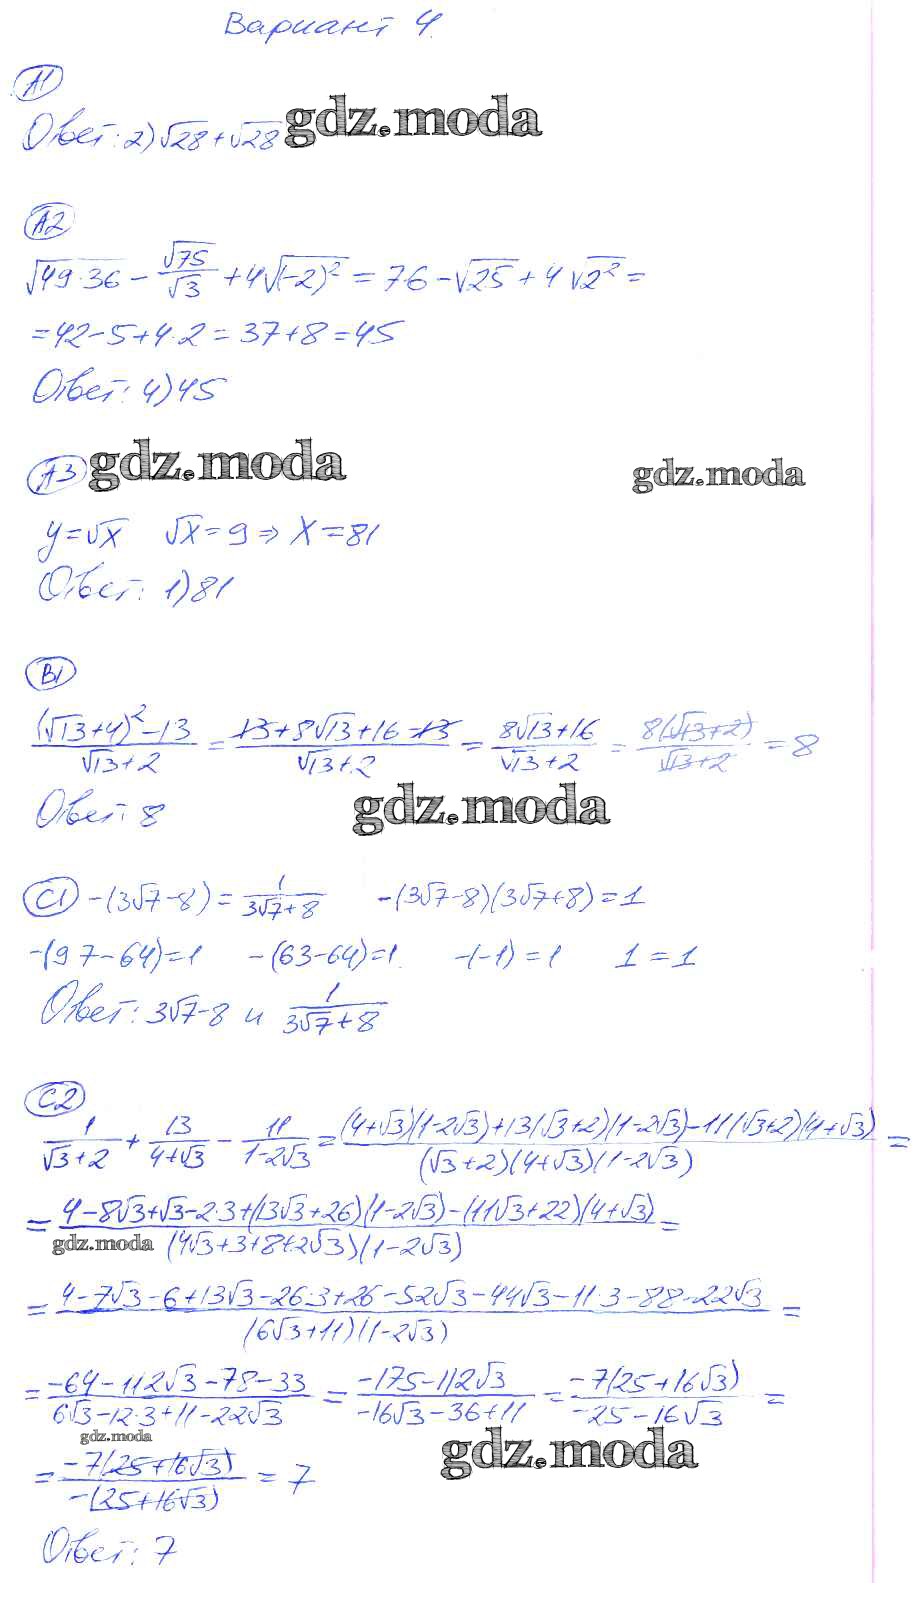 Вариант 4.
А1
Ответ: 2) √28 + √28 gdz.moda
А2
√(49·36) − √75/√3 + 4√((−2)²) = 7·6 − √25 + 4√(2²) =
= 42 − 5 + 4·2 = 37 + 8 = 45
Ответ: 4) 45
А3 gdz.moda gdz.moda
y = √x √x = 9 ⇒ x = 81
Ответ: 1) 81
В1
((√13 + 4)² − 13)/(√13 + 2) = (13 + 8√13 + 16 − 13)/(√13 + 2) = (8√13 + 16)/(√13 + 2) = 8(√13 + 2)/(√13 + 2) = 8
Ответ: 8 gdz.moda
С1 −(3√7 − 8) = 1/(3√7 + 8) −(3√7 − 8)(3√7 + 8) = 1
−(9·7 − 64) = 1 −(63 − 64) = 1. −(−1) = 1 1 = 1
Ответ: 3√7 − 8 и 1/(3√7 + 8)
С2
1/(√3 + 2) + 13/(4 + √3) − 11/(1 − 2√3) = ((4 + √3)(1 − 2√3) + 13(√3 + 2)(1 − 2√3) − 11(√3 + 2)(4 + √3))/((√3 + 2)(4 + √3)(1 − 2√3)) =
= (4 − 8√3 + √3 − 2·3 + (13√3 + 26)(1 − 2√3) − (11√3 + 22)(4 + √3))/((4√3 + 3 + 8 + 2√3)(1 − 2√3)) =
gdz.moda
= (4 − 7√3 − 6 + 13√3 − 26·3 + 26 − 52√3 − 44√3 − 11·3 − 88 − 22√3)/((6√3 + 11)(1 − 2√3)) =
= (−64 − 112√3 − 78 − 33)/(6√3 − 12·3 + 11 − 22√3) = (−175 − 112√3)/(−16√3 − 36 + 11) = −7(25 + 16√3)/(−25 − 16√3) =
gdz.moda gdz.moda
= −7(25 + 16√3)/(−(25 + 16√3)) = 7
Ответ: 7